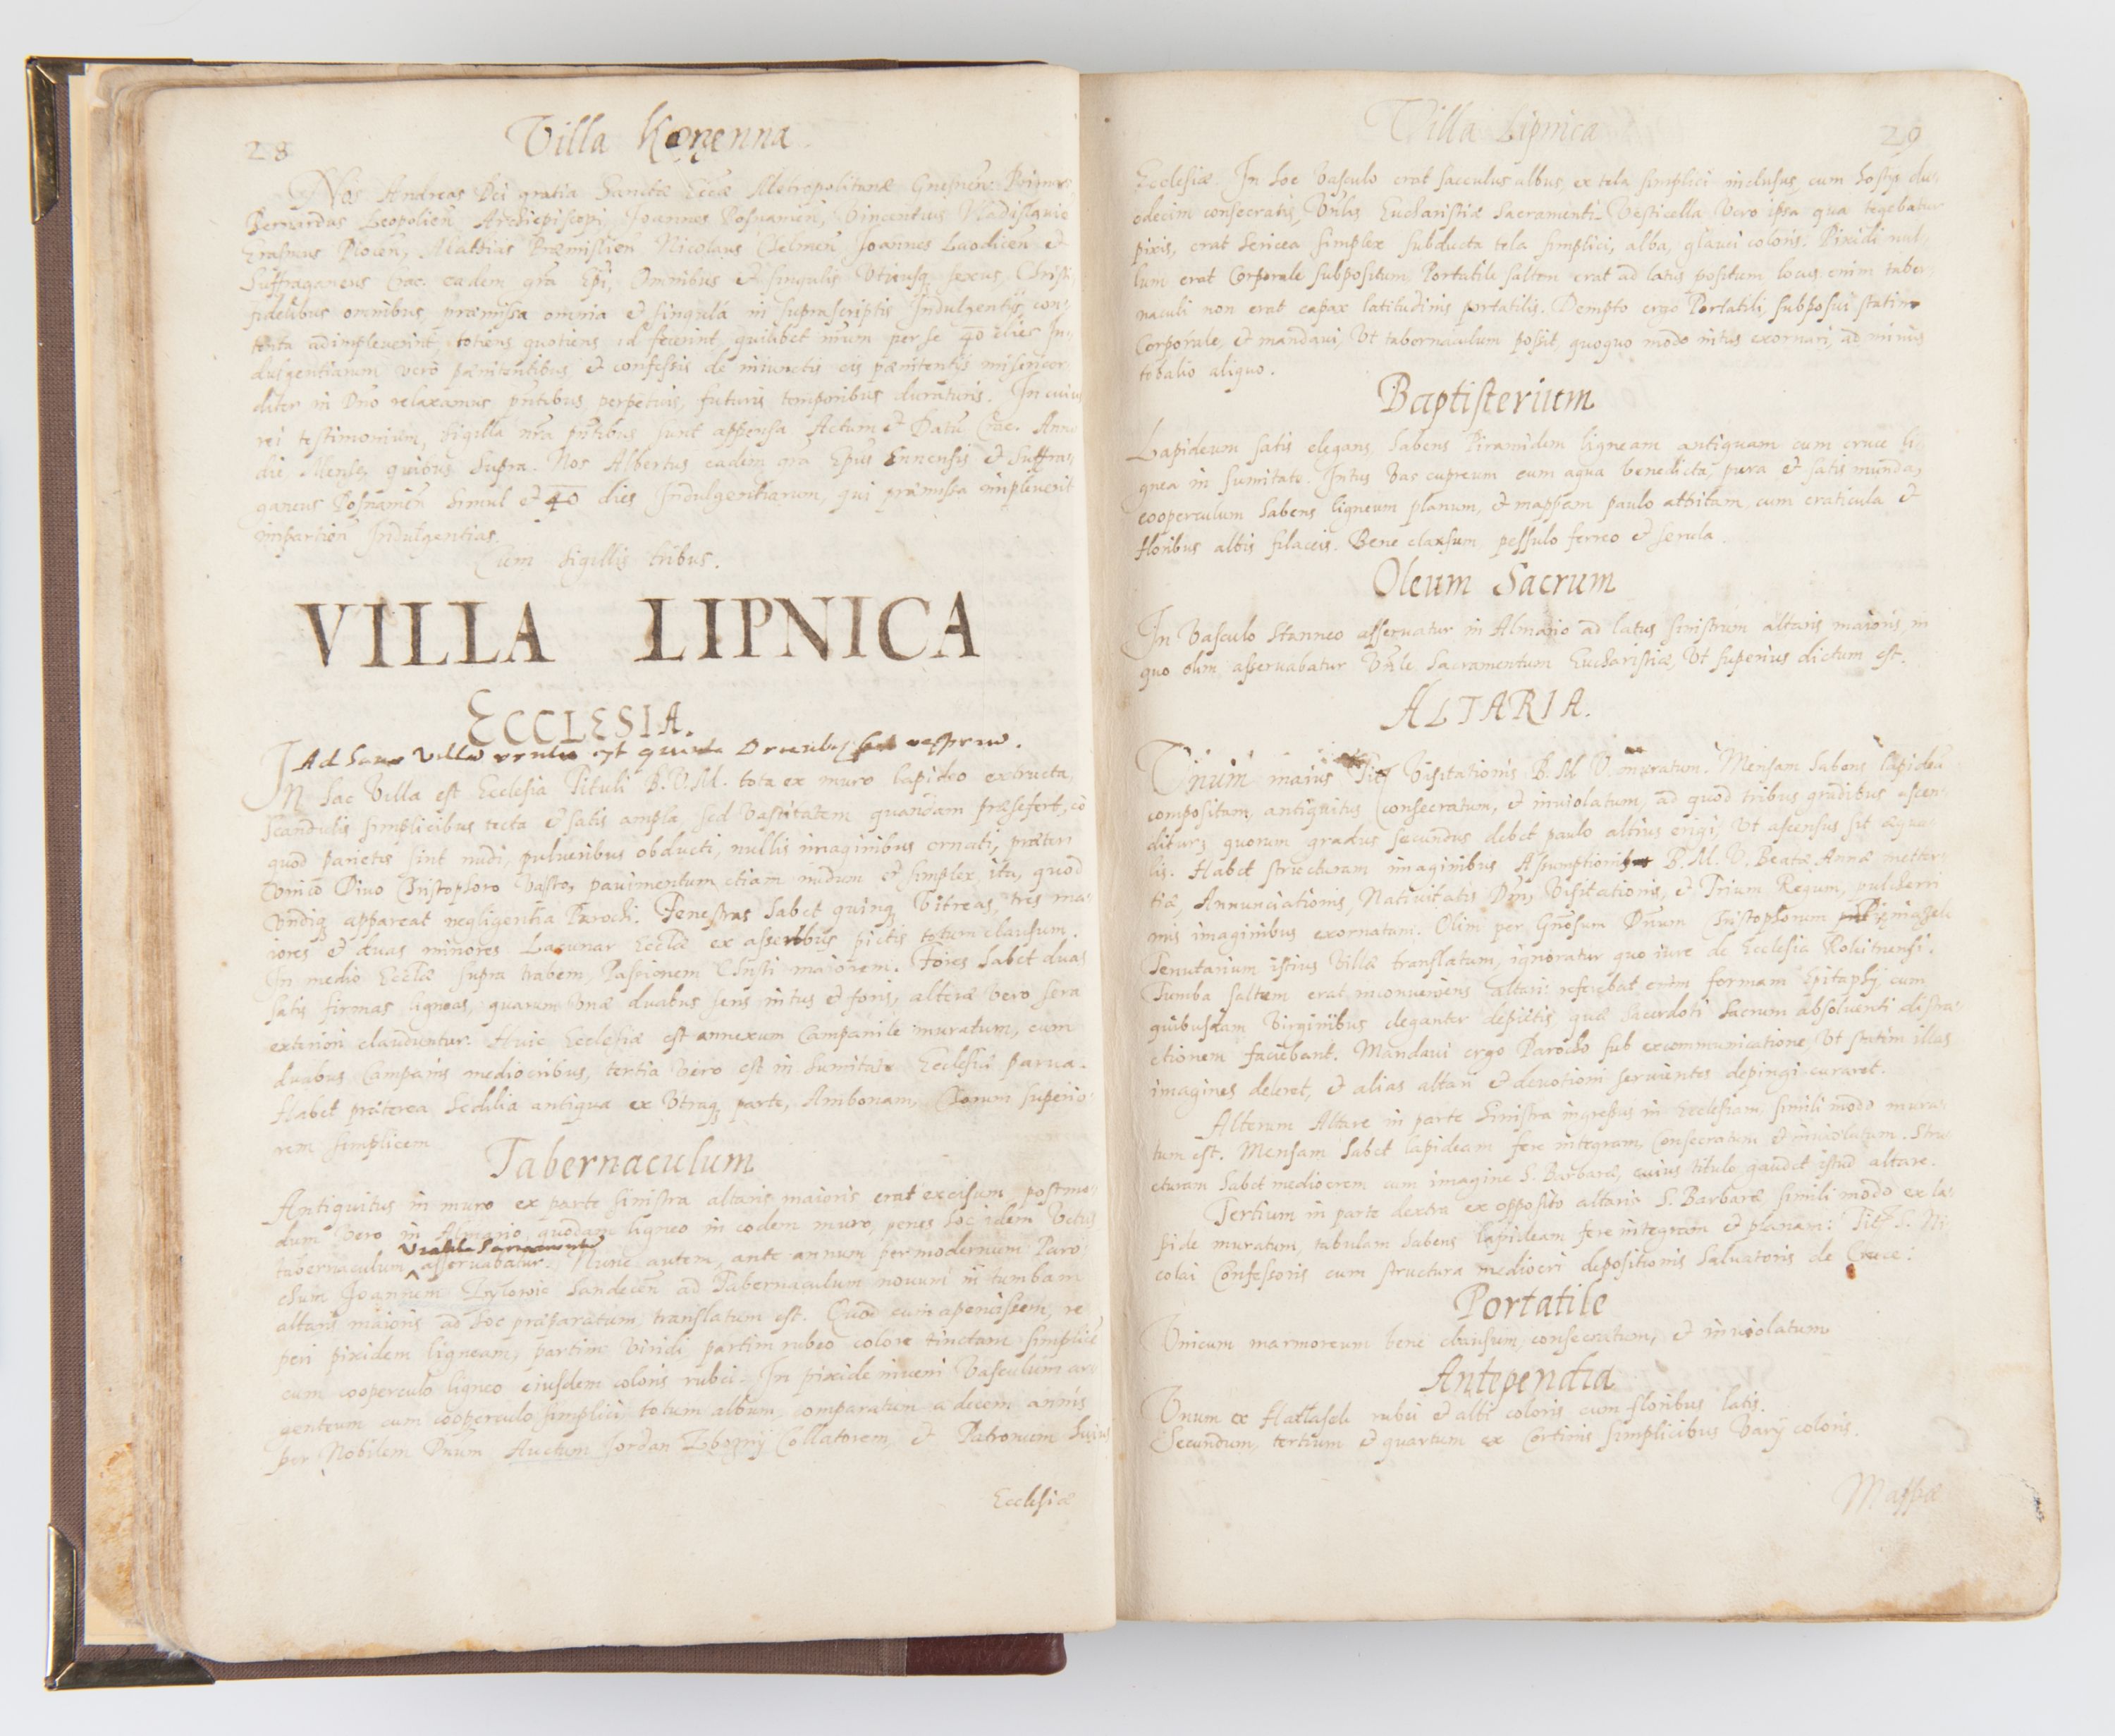 28
Villa Korzenna.
Nos Andreas Dei gratia Sanctæ Eccæ Metropolitanæ Gnesnen: Primas
Bernardus Leopolien Archiepiscopi, Joannes Posnanien, Vincentius Vladislavien
Erasmus Plocen, Mathias Præmislien Nicolaus Chelmen Joannes Laodicen et
Suffraganeus Crac. eadem gra Epi, Omnibus et singulis Utriusq sexus Christi
fidelibus omnibus, præmissa omnia et singula in suprascriptis Indulgentijs con-
tenta adimpleverint, totiens quotiens id fecerint, quilibet nrum per se 40 dies In-
dulgentiarum vero pænitentibus, et confessis de iniunctis eis pænitentijs misericor-
diter in Dno relaxamus pntibus perpetuis, futuris temporibus duraturis. In cuius
rei testimonium, sigilla nra pntibus sunt appensa Actum et Datu Crac. Anno
die Mense, quibus supra. Nos Albertus eadem gra Epus Ennensis et Suffra-
ganeus Posnanien simul et 40 dies Indulgentiarum, qui præmissa impleverit
impartien Indulgentias.
Cum Sigillis tribus.
VILLA LIPNICA
ECCLESIA.
Ad hanc Villa
IN hac Villa est Ecclesia Tituli B.V.M. tota ex muro lapideo extructa,
Scandulis simplicibus tecta et satis ampla sed vastitatem quandam præsefert, eo
quod parietes sint nudi, pulveribus obducti, nullis imaginibus ornati, præter
Unico Divo Christophoro Vasto, pavimentum etiam nudum et simplex ita, quod
Undiq appareat negligentia Parochi. Fenestras habet quinq Vitreas, tres ma-
iores et duas minores Lacunar Ecclæ ex asseribus pictis totum clausum.
In medio Ecclæ supra trabem, Passionem Christi maiorem. Fores habet duas
satis firmas ligneas, quarum Unæ duabus seris intus et foris, alteræ Vero sera
exteriori clauduntur. Huic Ecclesiæ est annexum Campanile muratum, cum
duabus Campanis mediocribus, tertia vero est in sumitate Ecclesiæ parva.
Habet præterea Sedilia antiqua ex Utraq parte, Ambonam, Chorum superio-
rem simplicem
Tabernaculum
Antiquitus in muro ex parte sinistra altaris maioris erat excisum, postmo-
dum Vero in Almario quodam ligneo in eodem muro, penes hoc idem Vetus
Vnble Sacramentu
tabernaculum asservabatur. Nunc autem, ante annum per modernum Paro-
chum Joannem Sandecen ad Tabernaculum novum in tumbam
altaris maioris ad hoc præparatum, translatum est. Quod cum aperuissem, re-
peri pixidem ligneam, partim Viridi partim rubeo colore tinctam simplice
cum cooperculo ligneo eiusdem coloris rubei. In pixide inveni Vasculum ar-
genteum cum cooperculo simplici totum album, comparatum a decem annis
per Nobilem Dnum Auctum Jordan Zbozny Collatorem, et Patronum huius
Ecclesiæ
Villa Lipnica
29
Ecclesiæ. In hoc Vasculo erat sacculus albus, ex tela simplici inclusus, cum hostijs du-
odecim consecratis, Vnlis Eucharistiæ Sacramenti. Vesticella Vero ipsa qua tegebatur
pixis, erat Sericea simplex subducta tela simplici, alba, glauci coloris: Pixidi nul-
lum erat Corporale subpositum, Portatile saltem erat ad latus positum, locus enim taber-
naculi non erat capax latitudinis portatilis. Dempto ergo Portatili, subposui statim
Corporale, et mandavi, Ut tabernaculum possit quoquo modo intus exornari, ad minus
tobalio aliquo.
Baptisterium
Lapideum satis elegans, habens Piramidem ligneam antiquam cum cruce li-
gnea in sumitate. Intus Vas cupreum cum aqua benedicta, pura et satis munda,
cooperculum habens ligneum planum, et mappam paulo attritam, cum craticula et
floribus albis filaceis. Bene clausum pessulo ferreo et serula.
Oleum Sacrum
In Vasculo Stanneo asservatur in Almario ad latus sinistrum altaris maioris, in
quo olim asservabatur Vnle Sacramentum Eucharistiæ, Ut superius dictum est.
ALTARIA.
Unum maius Titl Visitationis B.M.V. muratum. Mensam habens lapidea
compositam, antiquitus consecratum, et inviolatum, ad quod tribus gradibus ascen-
ditur, quorum gradus secundus debet paulo altius erigi, Ut ascensus sit æqua-
lis. Habet structuram imaginibus Assumptionis B.M.V. Beatæ Annæ metter-
tiæ, Annunciationis, Nativitatis Dni, Visitationis, et Trium Regum, pulcherri-
mis imaginibus exornatam. Olim per Gnosum Dnum Christophorum
Tenutarium istius Villæ translatum, ignoratur quo iure de Ecclesia
Tumba saltem erat inconveniens altari: referebat enim formam Epitaphij cum
quibusdam Virginibus eleganter depictis, quæ sacerdoti Sacrum absolventi distra-
ctionem faciebant. Mandavi ergo Parocho sub excommunicatione, Ut statim illas
imagines deleret, et alias altari et devotioni servientes depingi curaret.
Alterum Altare in parte sinistra ingressus in Ecclesiam, simili modo mura-
tum est. Mensam habet lapideam fere integram, Consecratum et inviolatum. Stru-
cturam habet mediocrem cum imagine S. Barbaræ, cuius titulo gaudet istud altare.
Tertium in parte dextra ex opposito altaris S. Barbaræ simili modo ex la-
pide muratum, tabulam habens lapideam fere integram et planam: Titl S. Ni-
colai Confessoris cum structura mediocri depositionis Salvatoris de Cruce:
Portatile
Unicum marmoreum bene clausum, consecratum, et inviolatum
Antependia
Unum ex Hatłasek rubei et albi coloris cum floribus latis.
Secundum, tertium et quartum ex Cortinis simplicibus Varij coloris.
Mappæ